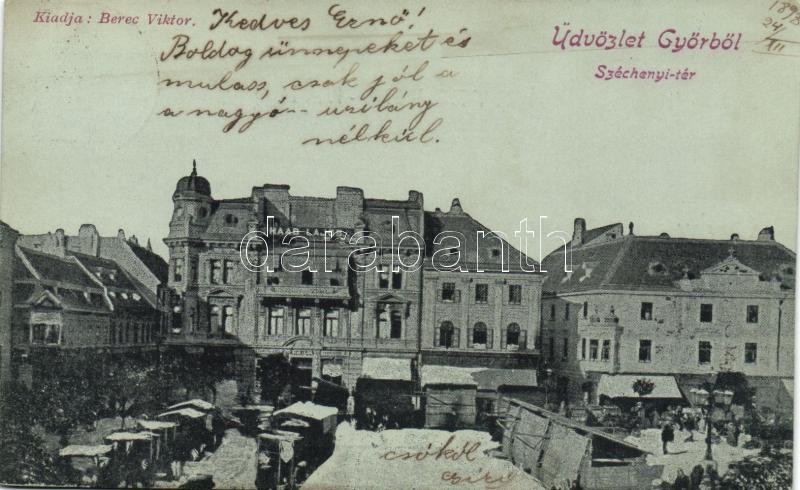 Kiadja: Berec Viktor.
Kedves Ernő!
Boldog ünnepeket és
mulass, csak jól a
a nagyó--uzilány
nélkül.
Üdvözlet Győrből
Széchenyi-tér
1898
24/III
darabanth
csókol